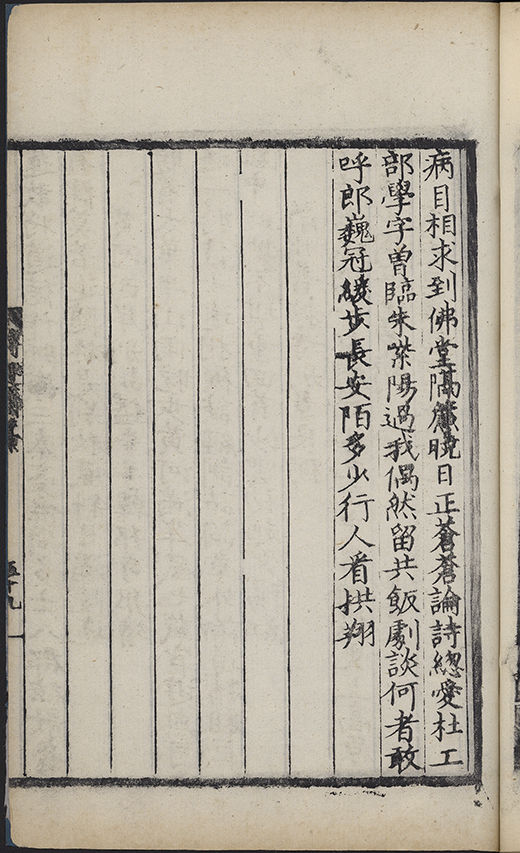 病目相求到佛堂隔簾曉日正蒼蒼論詩總愛杜工
部學字曾臨朱紫陽過我偶然留共飯劇談何者敢
呼郎巍冠緩步長安陌多少行人看拱翔
五十九